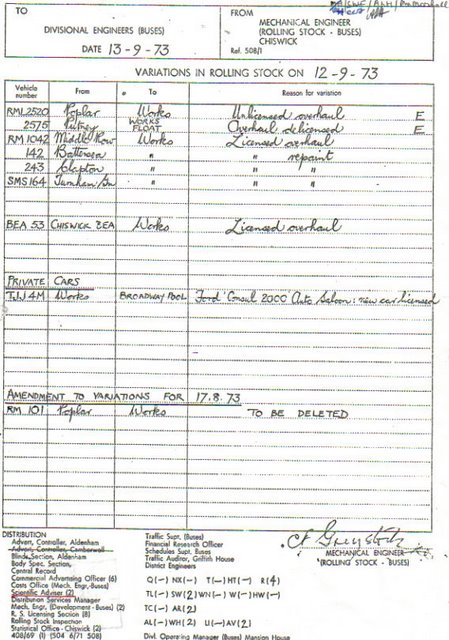 TO
DIVISIONAL ENGINEERS (BUSES)
DATE 13-9-73
FROM
MECHANICAL ENGINEER
(ROLLING STOCK - BUSES)
CHISWICK
Ref. 508/1
VARIATIONS IN ROLLING STOCK ON 12-9-73
Vehicle number From To Reason for variation
RML 2520 Poplar Works Unlicensed overhaul E
2575 Putney WORKS FLOAT Overhaul delicensed E
RM 1042 Middle Row Works Licensed overhaul
142 Battersea " " repaint
243 Clapton " " "
SMS 164 Turnham Gn " " "
BEA 53 CHISWICK BEA Works Licensed overhaul
PRIVATE CARS
4M Works BROADWAY POOL Ford 'Consul 2000' Auto Saloon: new car licensed
AMENDMENT TO VARIATIONS FOR 17.8.73
RM 101 Poplar Works TO BE DELETED
MECHANICAL ENGINEER
(ROLLING STOCK - BUSES)
DISTRIBUTION
Advert. Controller, Aldenham
Advert. Controller, Camberwell
Blinds Section, Aldenham
Body Spec. Section,
Central Record
Commercial Advertising Officer (6)
Costs Office (Mech. Engr.-Buses)
Scientific Adviser (2)
Distribution Services Manager
Mech. Engr. (Development - Buses) (2)
R. S. Licensing Section (8)
Rolling Stock Inspection
Statistical Office - Chiswick (2)
408/69 (1) (504 6/71 508)
Traffic Supt. (Buses)
Financial Research Officer
Schedules Supt. Buses
Traffic Auditor, Griffith House
District Engineers
Q(-) NX(-) T(-) HT(-) R(4)
TL(-) SW(2) WN(-) W(-) HW(-)
TC(-) AR(2)
AL(-) WH(2) U(-) AV(2)
Divl. Operating Manager (Buses) Mansion House